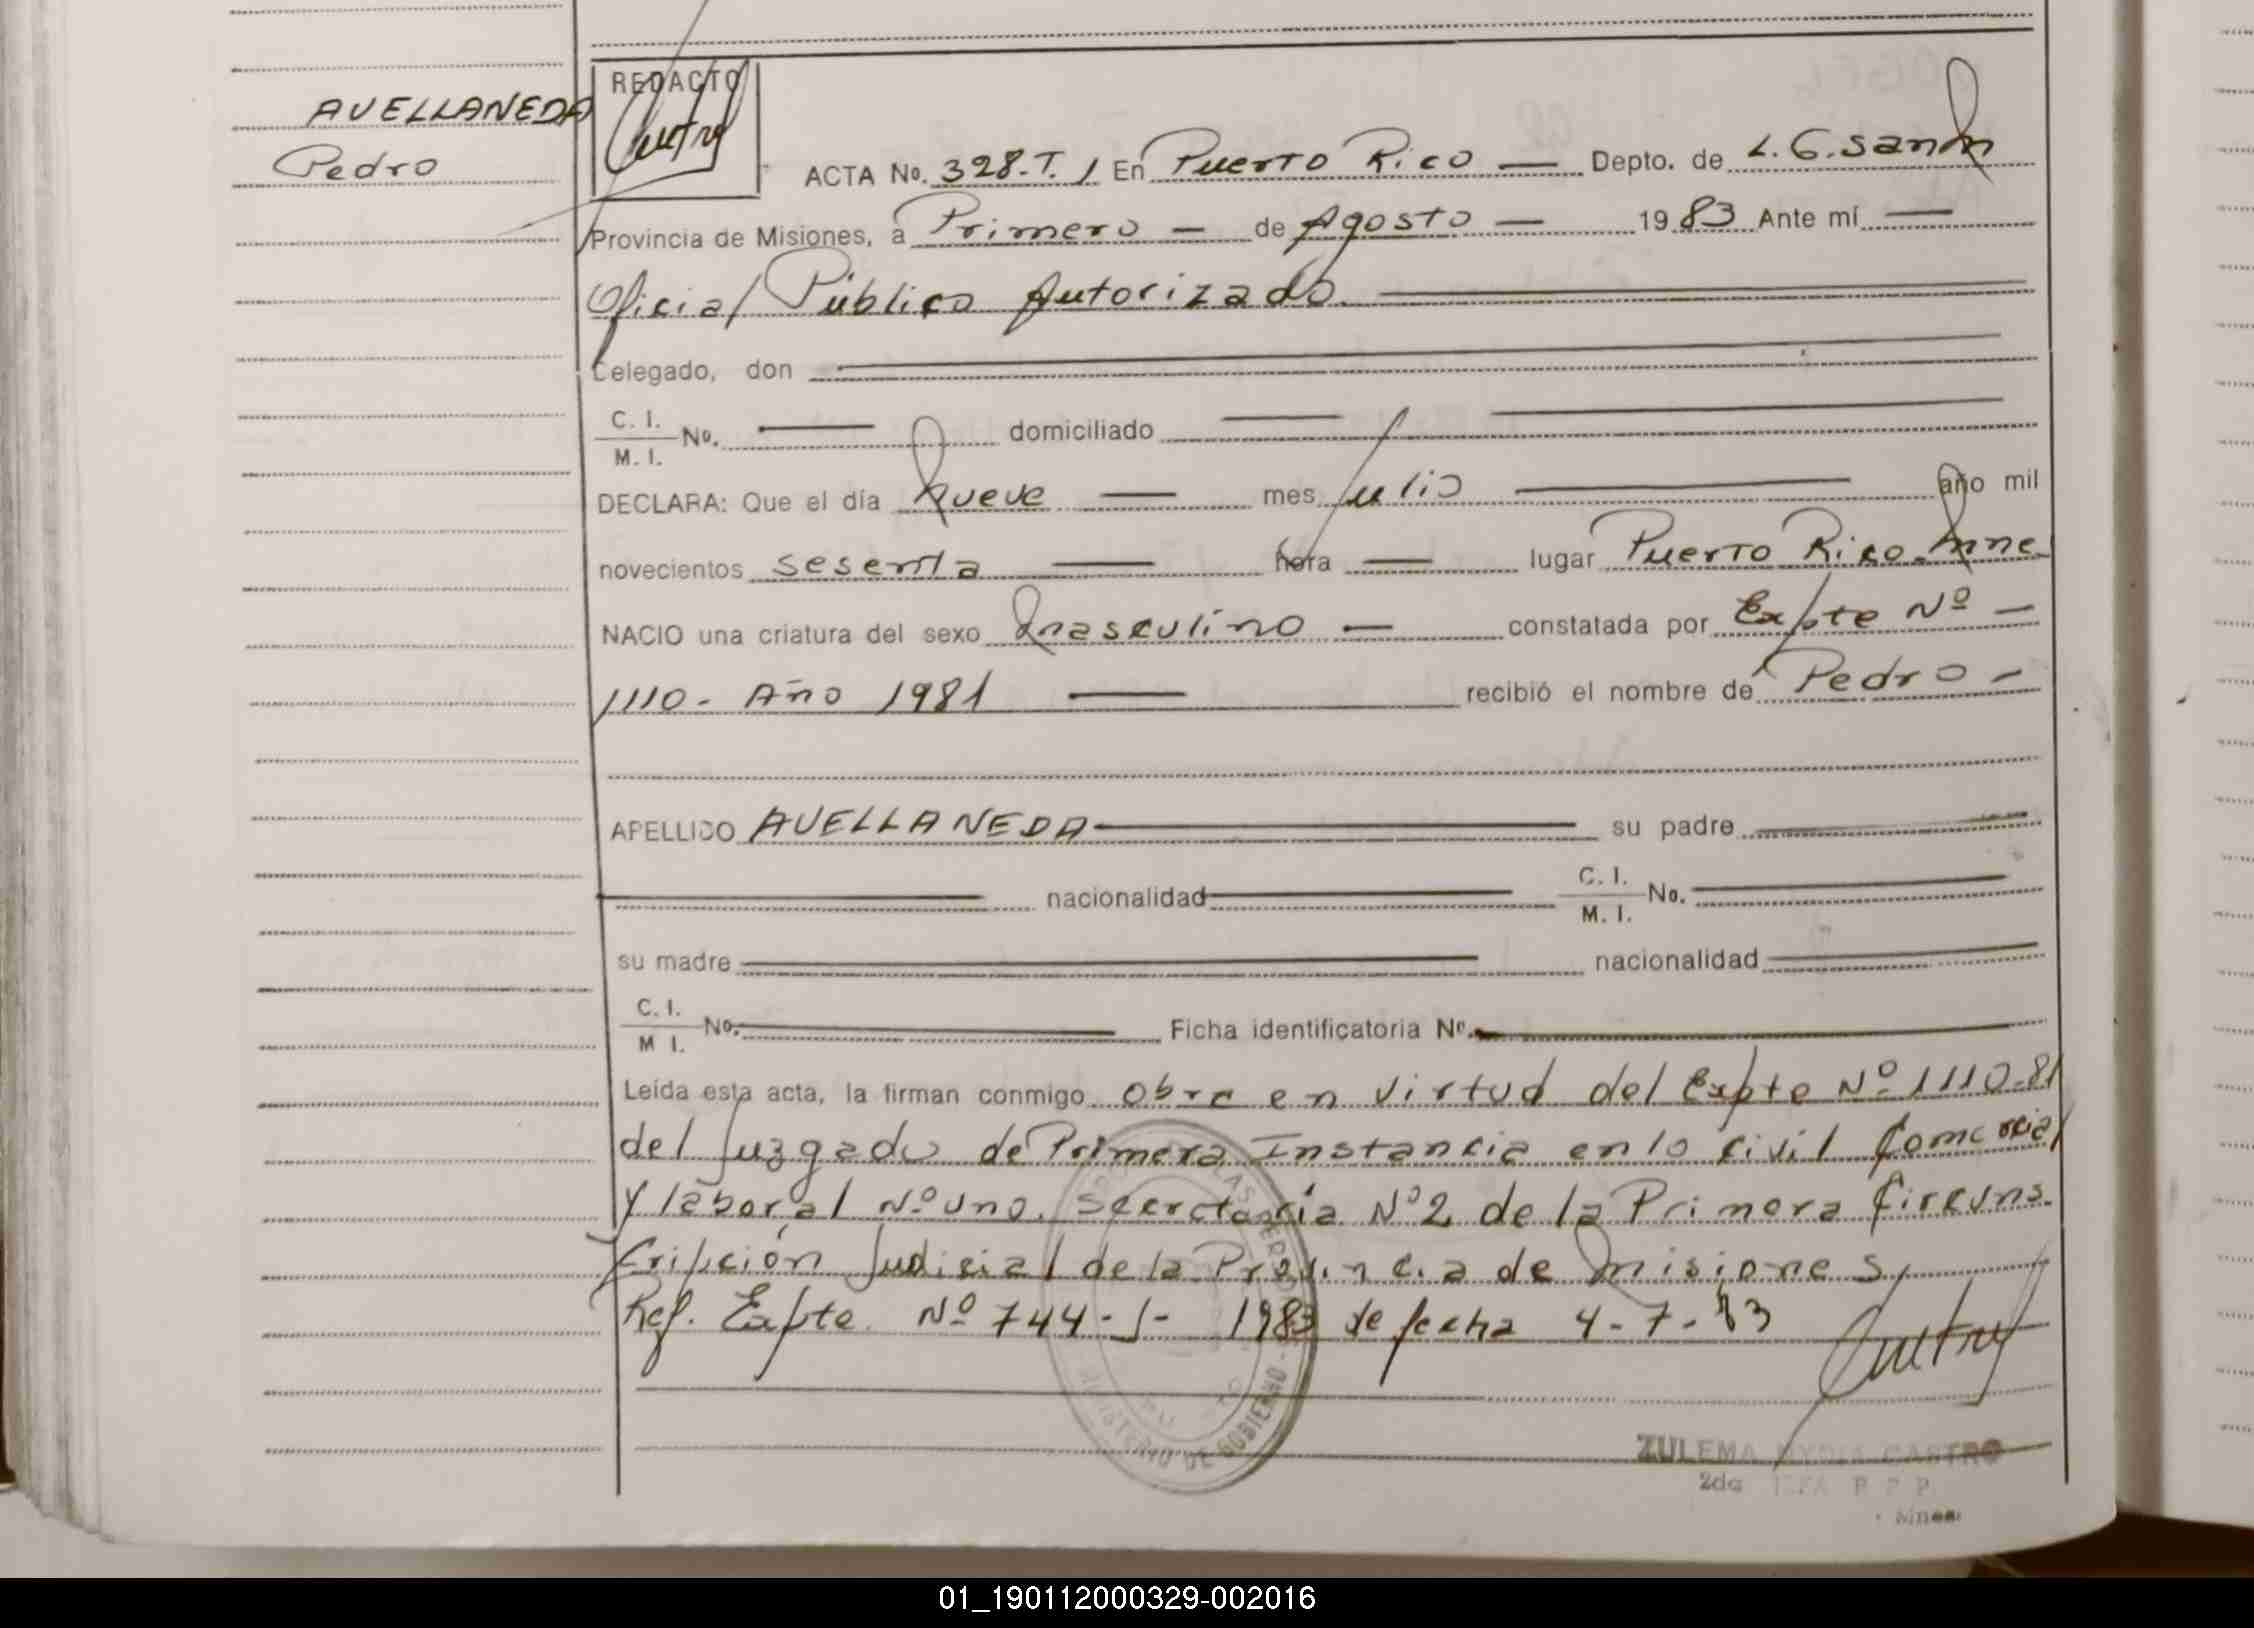 AVELLANEDA
Pedro
REDACTO
ACTA No. 328.T. 1 En Puerto Rico — Depto. de L.G.San M
Provincia de Misiones, a Primero — de Agosto — 1983 Ante mí —
Oficial Público Autorizado.
Delegado, don
C. I.
M. I. No. — domiciliado —
DECLARA: Que el día nueve — mes julio — año mil
novecientos sesenta — hora — lugar Puerto Rico-Mnes
NACIO una criatura del sexo masculino — constatada por Expte Nº —
1110- Año 1981 — recibió el nombre de Pedro —
APELLIDO AVELLANEDA — su padre
nacionalidad C. I.
M. I. No.
su madre nacionalidad
C. I.
M I. No. Ficha identificatoria Nº.
Leída esta acta, la firman conmigo obra en virtud del Expte Nº 1110-81
del Juzgado de Primera Instancia en lo Civil Comercial
y laboral Nº uno. Secretaría Nº 2 de la Primera Circuns-
cripción Judicial de la Provincia de Misiones,
Ref. Expte. Nº 744-J- 1983 de fecha 4-7-83
MINISTERIO DE GOBIERNO
ZULEMA CASTRO
2da
01_190112000329-002016